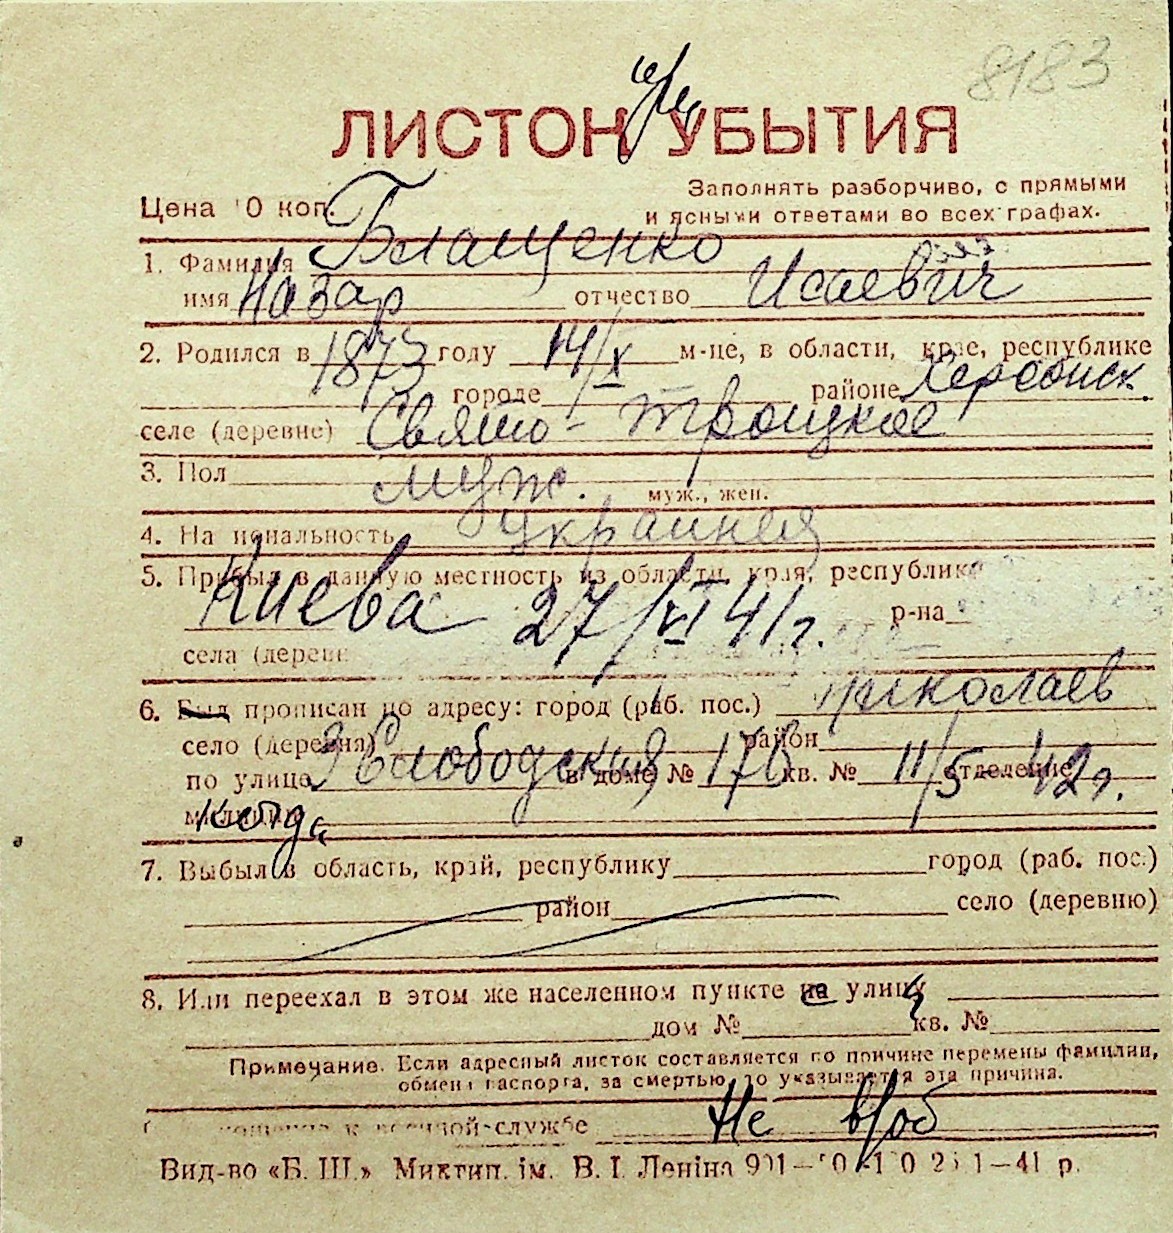 8183
ЛИСТОК УБЫТИЯ
Цена 10 коп.
Заполнять разборчиво, с прямыми
и ясными ответами во всех графах.
1. Фамилия Блащенко
имя Назар отчество Исаевич
2. Родился в 1873 году 14/X м-це, в области, крае, республике
городе районе Херсонск.
селе (деревне) Свято-Троицкое
3. Пол муж. муж., жен.
4. Национальность украинец
5. Прибыл в данную местность из области, края, республики
Киева 27/VI 41 г. р-на
села (дерев
6. Был прописан по адресу: город (раб. пос.) Николаев
село (деревня) район
по улице Слободская в доме № 17 кв. № 11/5 отделение 42 г.
милиции
7. Выбыл в область, край, республику город (раб. пос.)
район село (деревню)
8. Или переехал в этом же населенном пункте на улицу
дом № кв. №
Примечание. Если адресный листок составляется по причине перемены фамилии,
обмена паспорта, за смертью, то указывается эта причина.
ношение к военной службе Не в/об
Вид-во «Б. Ш.» Миктип. ім. В. І. Леніна